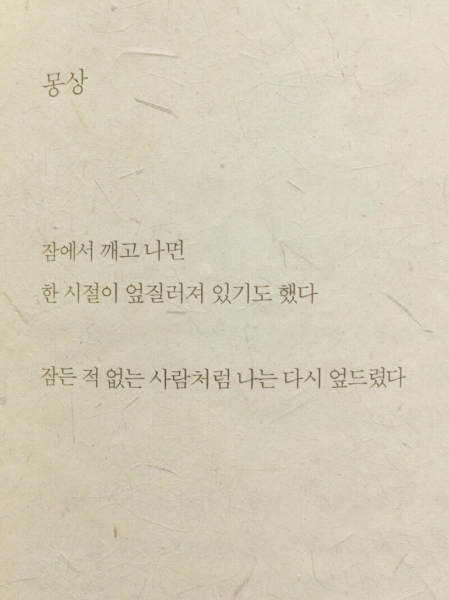 몽상
잠에서 깨고 나면
한 시절이 엎질러져 있기도 했다
잠든 적 없는 사람처럼 나는 다시 엎드렸다